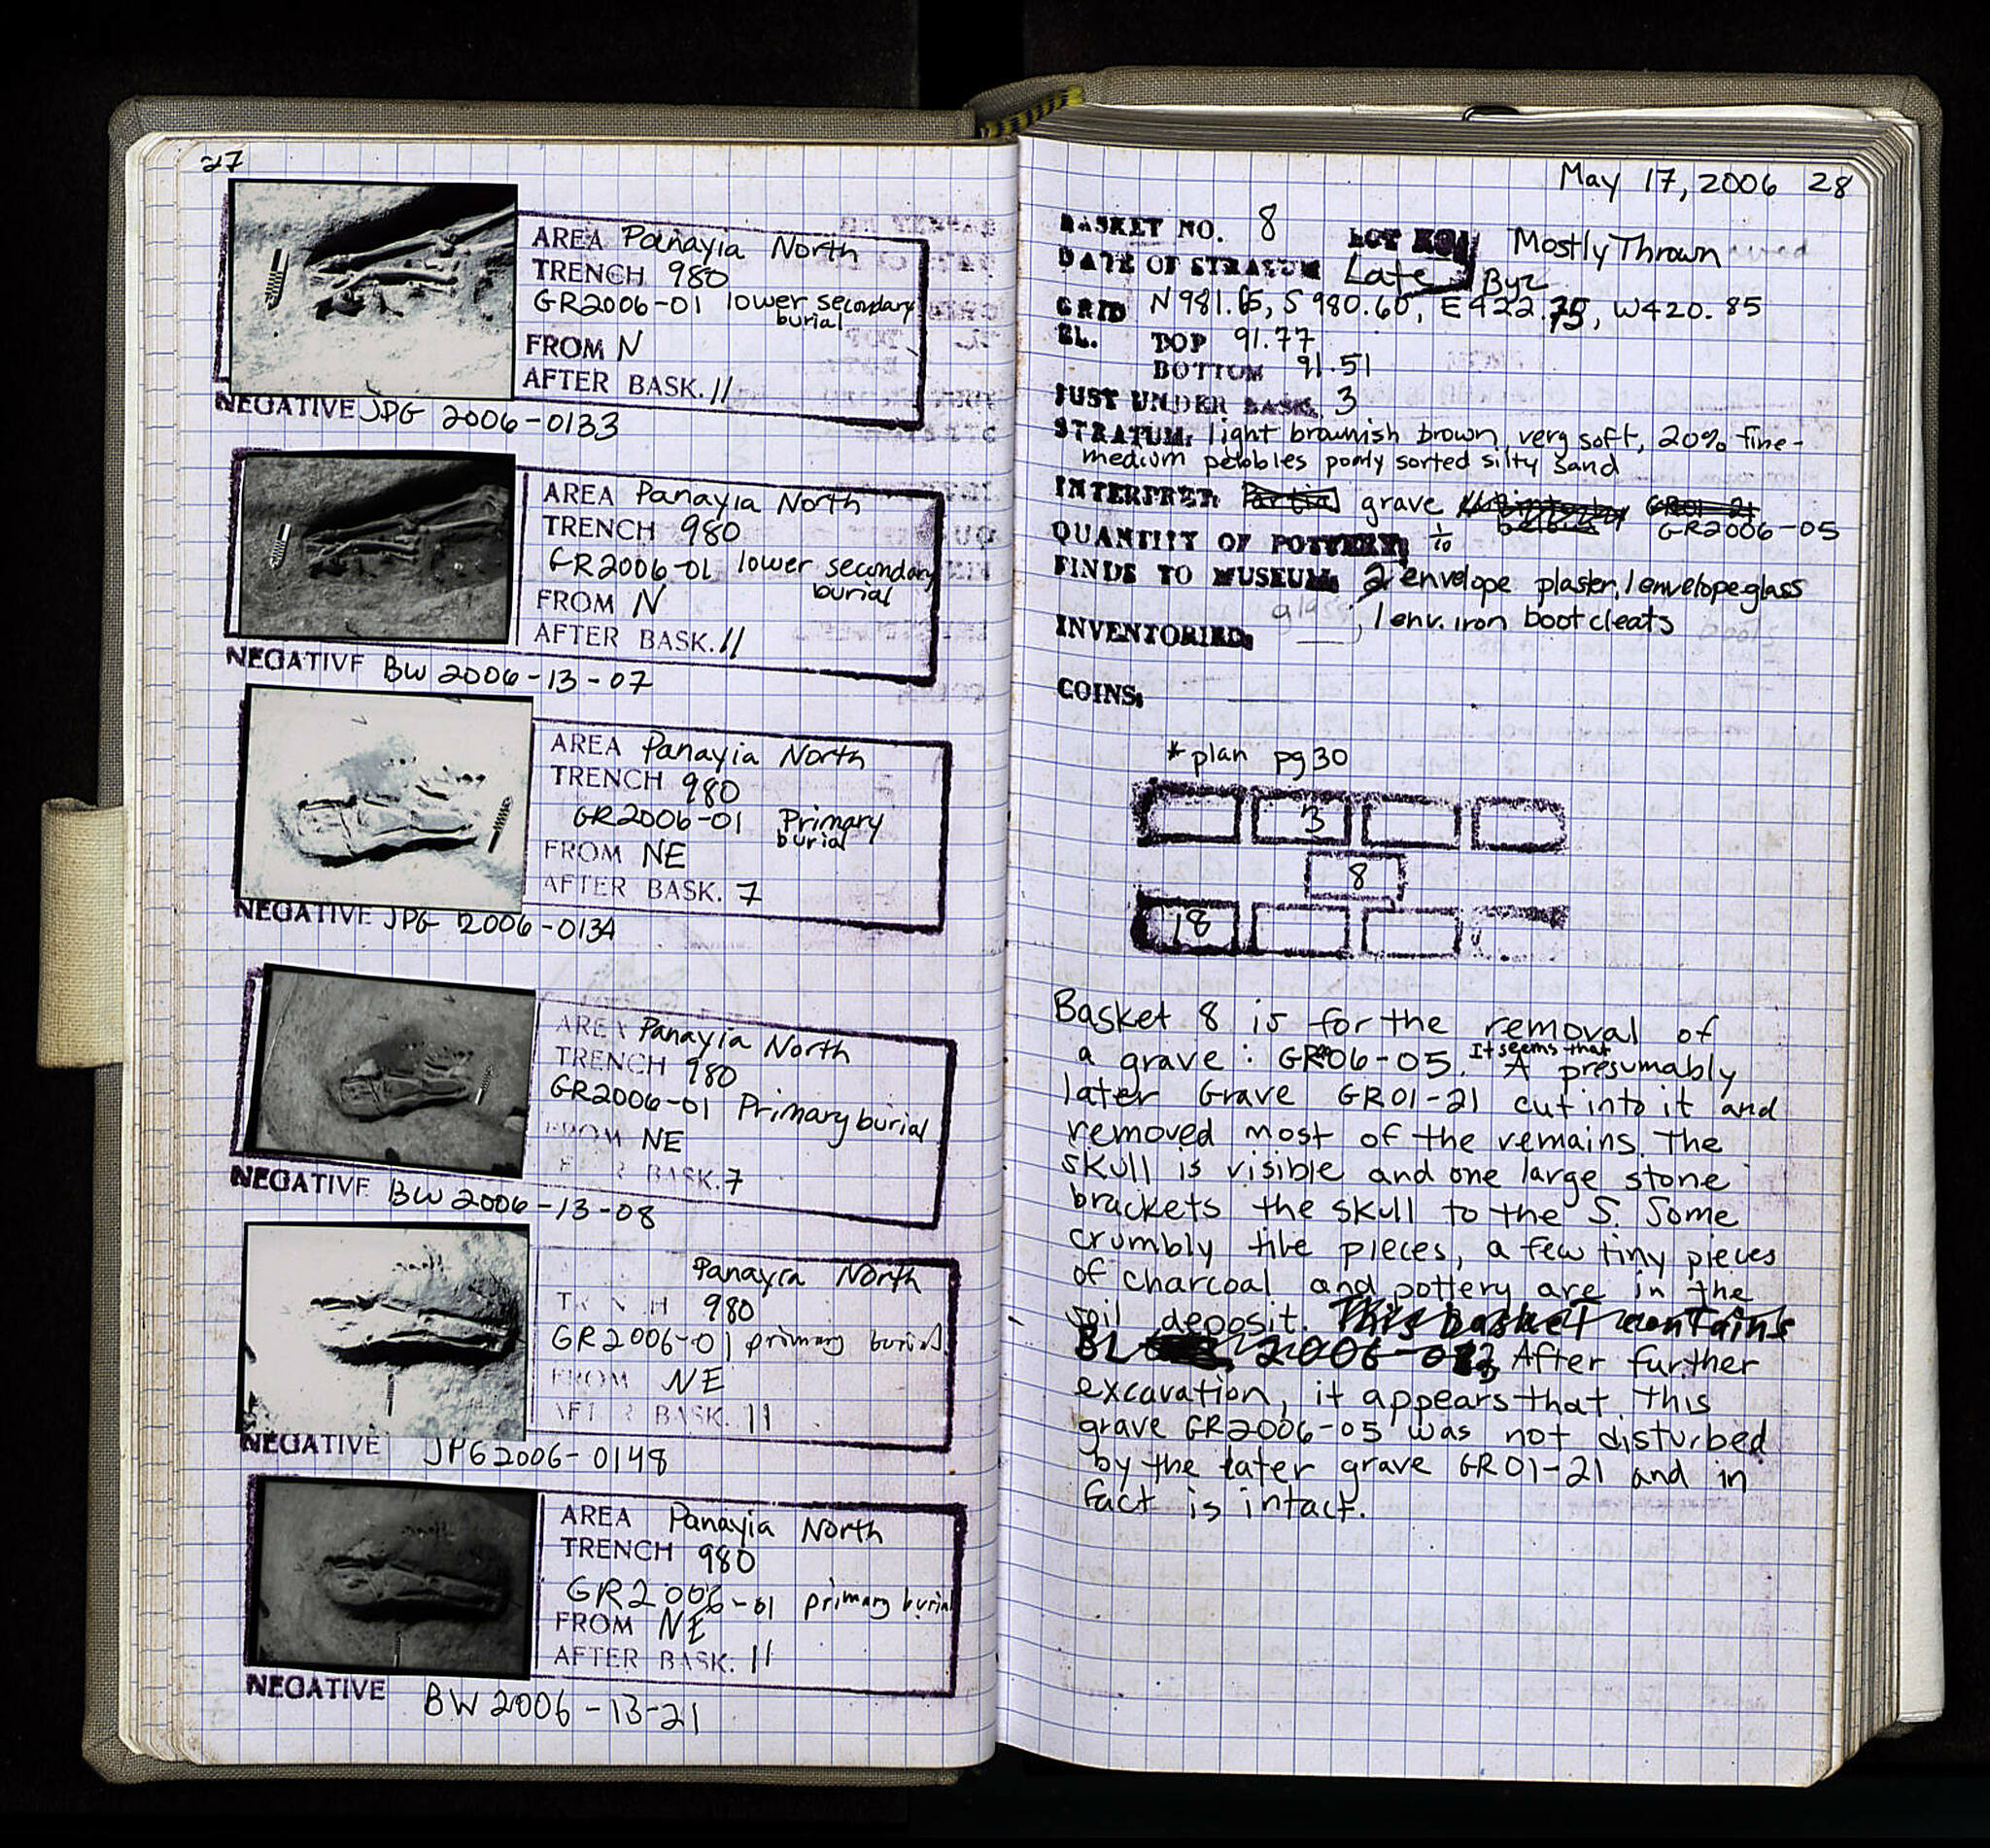 27
AREA Panayia North
TRENCH 980
GR2006-01 lower secondary
burial
FROM N
AFTER BASK. 11
NEGATIVE JPG 2006-0133
AREA Panayia North
TRENCH 980
GR2006-01 lower secondary
burial
FROM N
AFTER BASK. 11
NEGATIVE BW 2006-13-07
AREA Panayia North
TRENCH 980
GR2006-01 Primary
burial
FROM NE
AFTER BASK. 7
NEGATIVE JPG 2006-0134
AREA Panayia North
TRENCH 980
GR2006-01 Primary burial
FROM NE
AFTER BASK. 7
NEGATIVE BW 2006-13-08
Panayia North
TRENCH 980
GR2006-01 primary burial
FROM NE
AFTER BASK. 11
NEGATIVE JPG2006-0148
AREA Panayia North
TRENCH 980
GR2006-01 primary burial
FROM NE
AFTER BASK. 11
NEGATIVE BW2006-13-21
May 17, 2006 28
BASKET NO. 8 LOT NO. Mostly Thrown
DATE OF STRATUM Late Byz
GRID N981.65, S980.60, E422.75, W420.85
EL. TOP 91.77
BOTTOM 91.51
JUST UNDER BASK. 3
STRATUM: light brownish brown, very soft, 20% fine-
medium pebbles poorly sorted silty sand
INTERPRET: Partial grave GR01-21
GR2006-05
QUANTITY OF POTTERY: 1/10
FINDS TO MUSEUM: 2 envelope plaster, 1 envelope glass
glass, 1 env. iron boot cleats
INVENTORIED: —
COINS:
* plan pg 30
3
8
18
Basket 8 is for the removal of
a grave: GR06-05. It seems that A presumably
later Grave GR01-21 cut into it and
removed most of the remains. The
skull is visible and one large stone
brackets the skull to the S. Some
crumbly tile pieces, a few tiny pieces
of charcoal and pottery are in the
soil deposit. This basket contains
BL 2006-013 After further
excavation, it appears that this
grave GR2006-05 was not disturbed
by the later grave GR01-21 and in
fact is intact.